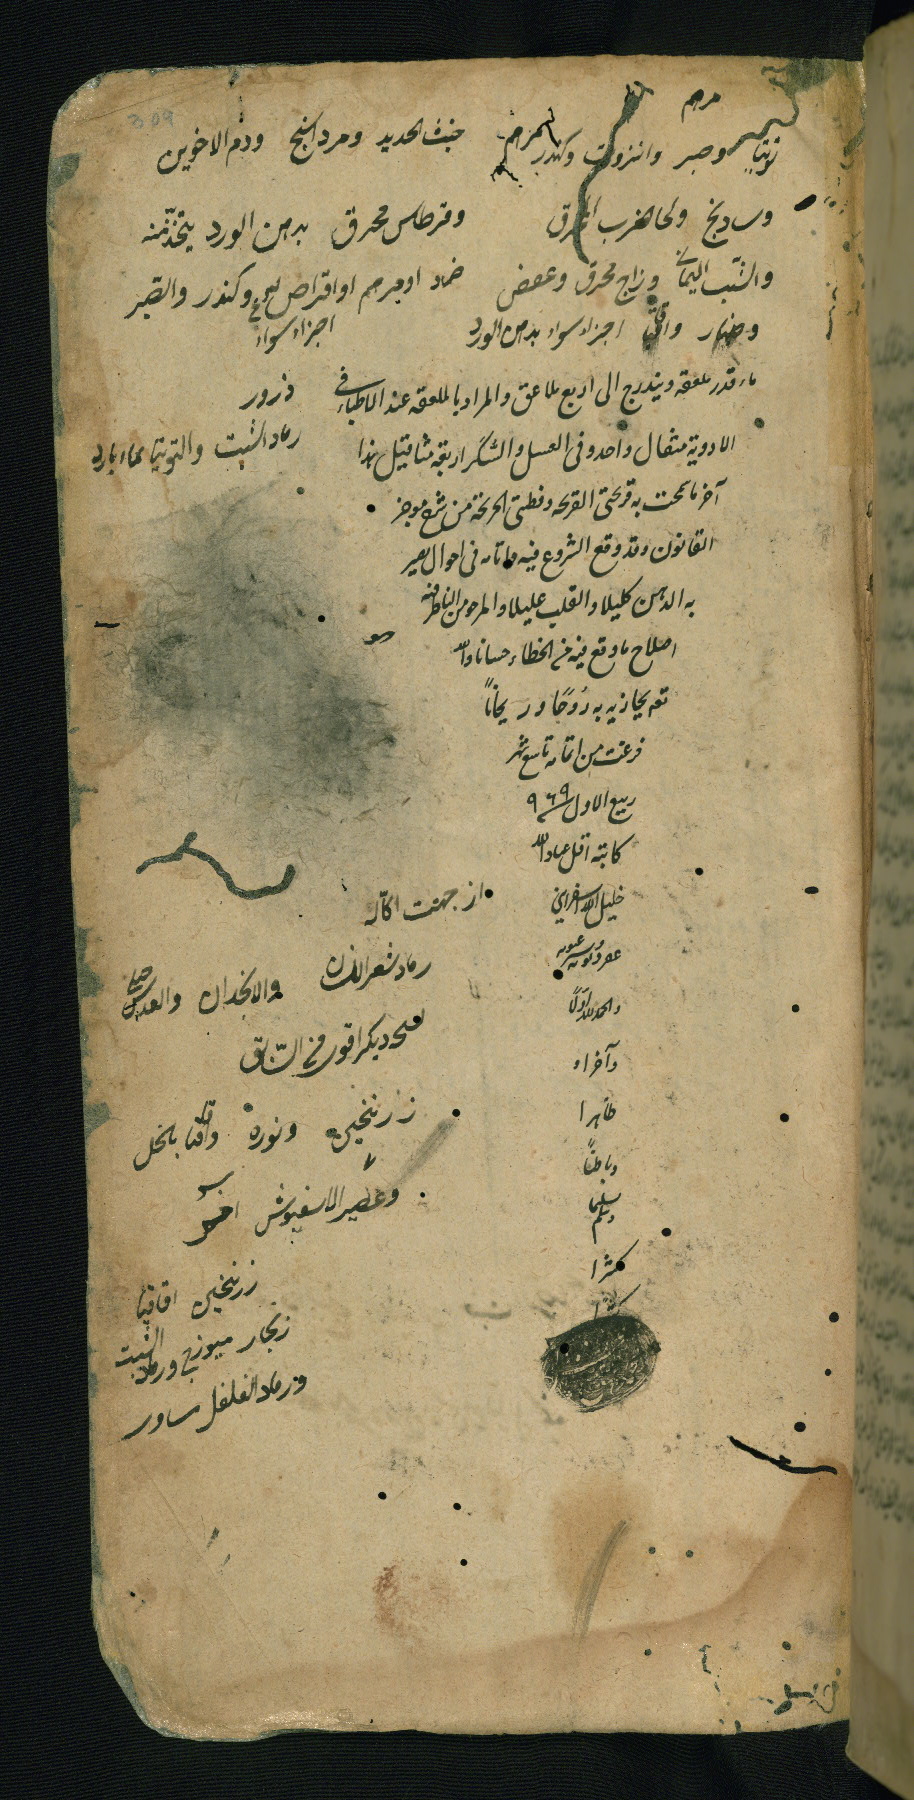 مرهم
توتيا وصبر وانزروت وكندر
خبث الحديد ومرداسنج ودم الاخوين
وسادنج المحرق
وقرطاس محرق بدهن الورد يتخذ منه
والشب اليماني وزاج محرق وعفص
ضماد او مرهم او اقراص وكندر والصبر
اجزاء سواء
واقاقيا اجزاء سواء بدهن الورد
ماء قدر ملعقه ويندرج الى اربع ملاعق والمراد بالملعقه عند الاطباء في
ذرور
الادوية مثقال واحد وفى العسل والسكر اربعة مثاقيل هذا
رماد الشبت والتوتيا بماء بارد
آخر ما سمحت به قريحتى القريحه وفطنتى الجريحة من شرح موجز
القانون وقد وقع الشروع فيه واتمامه فى احوال يصير
به الذهن كليلا والقلب عليلا والمرجو من الناظر فيه
اصلاح ما وقع فيه من الخطاء احسانا والله
تعم يجازيه به رَوحًا وريحانًا
فرغت من اتمامه تاسع شهر
ربيع الاول ٩٦٩
كاتبه اقل عباد الله
خليل الله
عفى ذنوبه وستر عيوبه
والحمد لله اوّلًا
وآخرا و
ظاهرا
وباطنًا
وسلم تسليما
كثيرا
كثيرا
از جهت آكله
رماد شعر والانجدان والعدس
ديكر اقوى من السابق
زرنيخين ونوره واقاقيا بالخل
وعصير الاسفيوش
زرنيخين اقاقيا
زنجار ميويزج ورماد الشبت
ورماد الفلفل